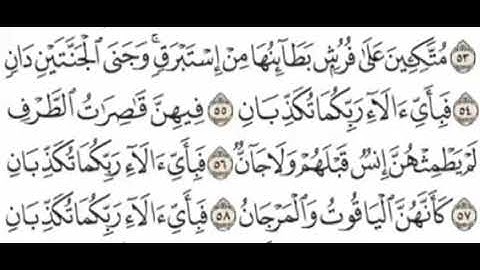 ٥٣ مُتَّكِـِٔينَ عَلَىٰ فُرُشٍۭ بَطَآئِنُهَا مِنْ إِسْتَبْرَقٍۚ وَجَنَى ٱلْجَنَّتَيْنِ دَانٍ
٥٤ فَبِأَىِّ ءَالَآءِ رَبِّكُمَا تُكَذِّبَانِ ٥٥ فِيهِنَّ قَٰصِرَٰتُ ٱلطَّرْفِ
لَمْ يَطْمِثْهُنَّ إِنسٌ قَبْلَهُمْ وَلَا جَآنٌّ ٥٦ فَبِأَىِّ ءَالَآءِ رَبِّكُمَا تُكَذِّبَانِ
٥٧ كَأَنَّهُنَّ ٱلْيَاقُوتُ وَٱلْمَرْجَانُ ٥٨ فَبِأَىِّ ءَالَآءِ رَبِّكُمَا تُكَذِّبَانِ